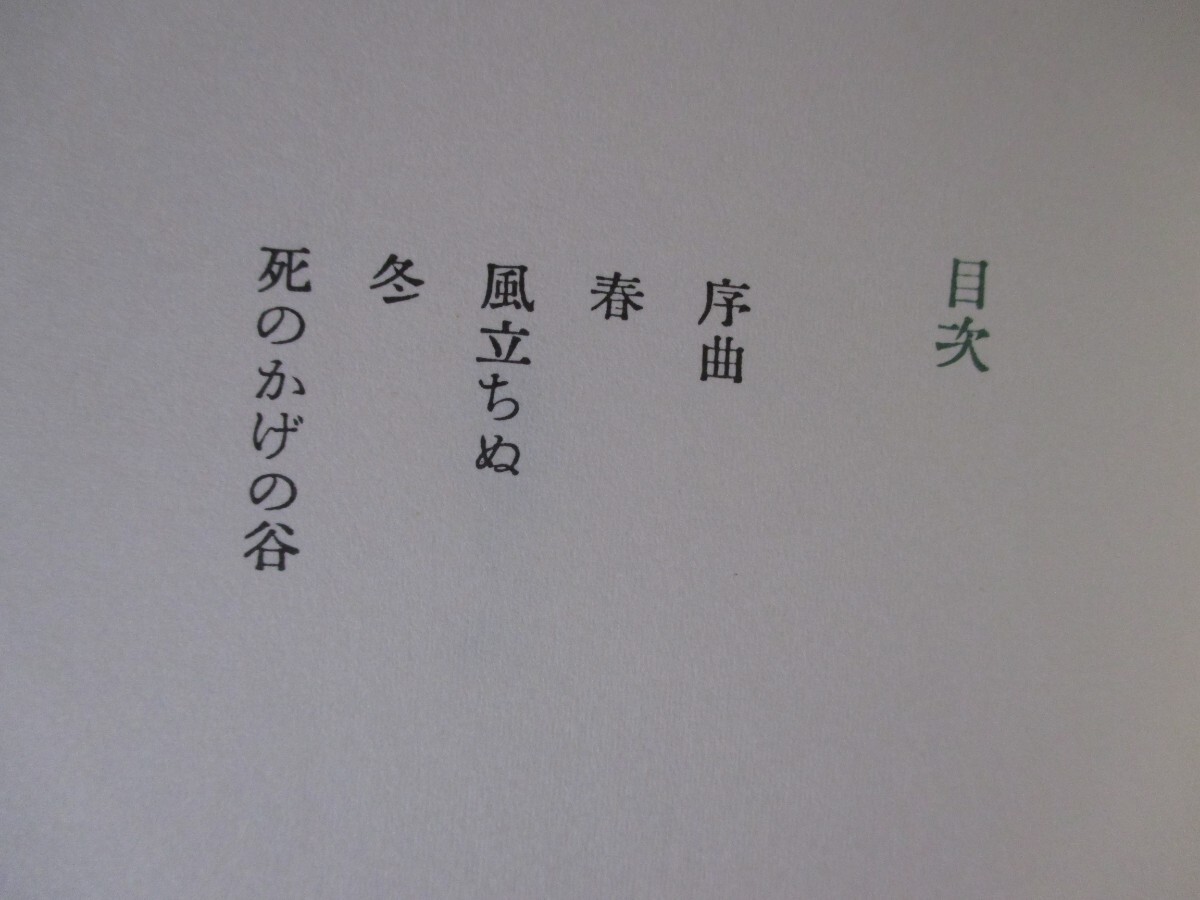 目次
序曲
春
風立ちぬ
冬
死のかげの谷